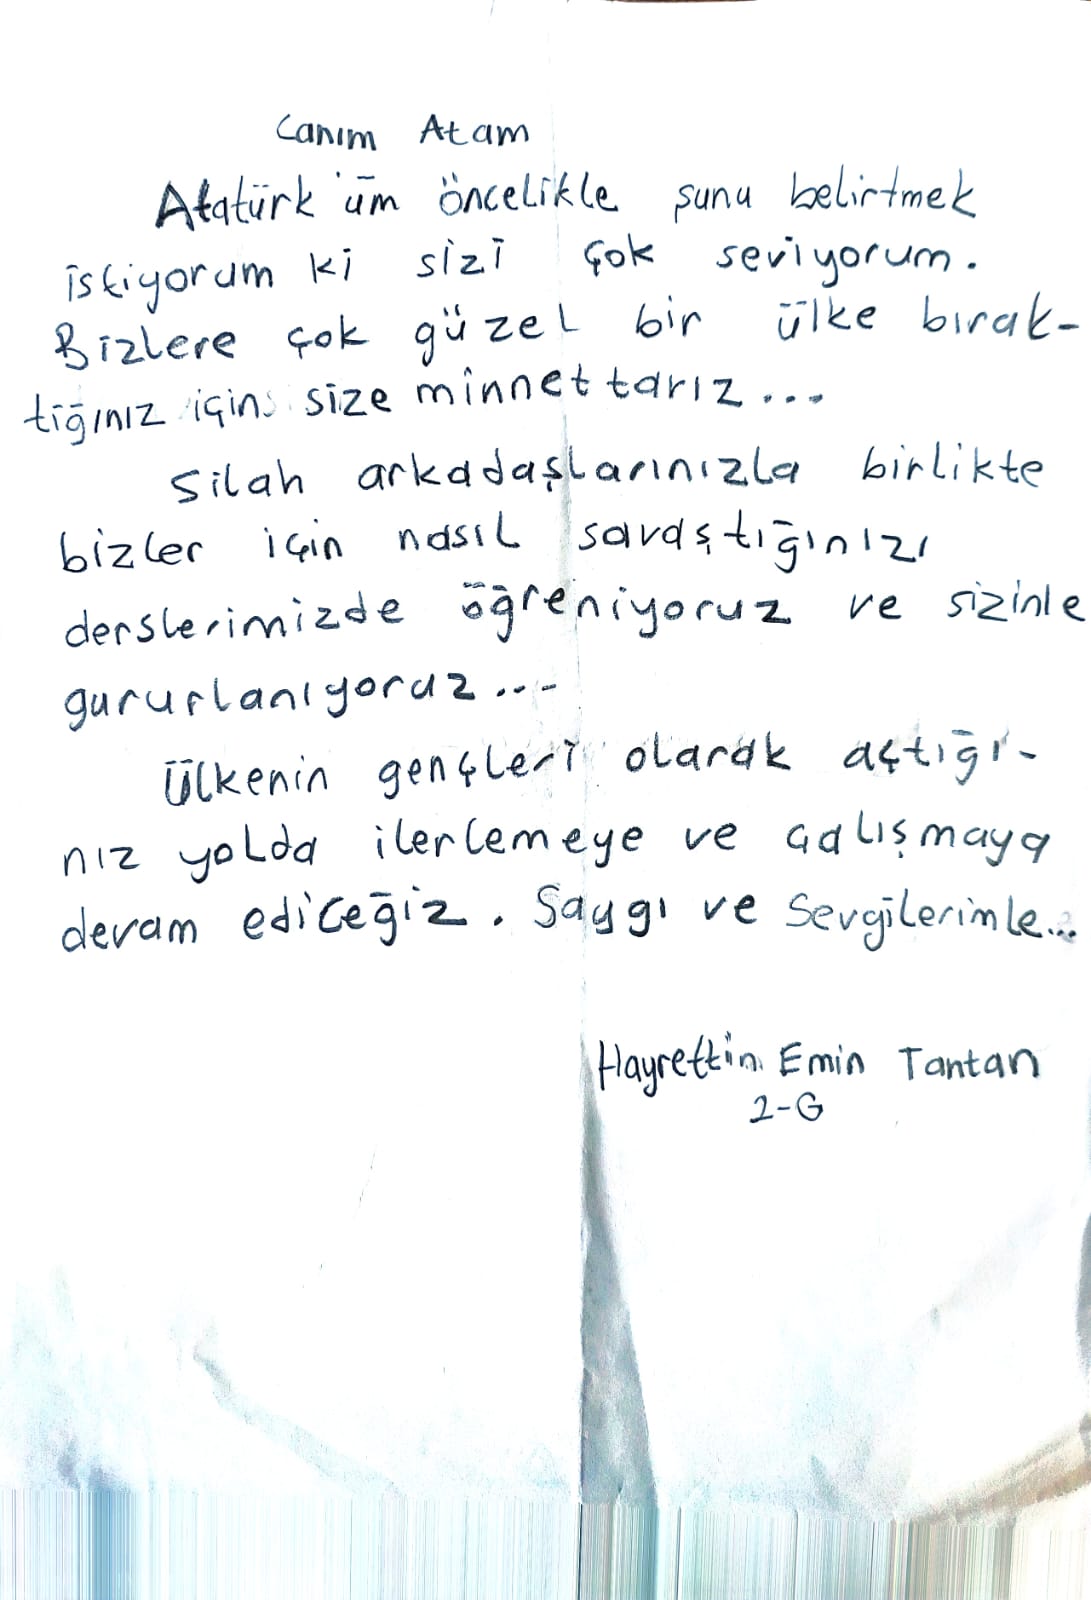 Canım Atam
Atatürk'üm öncelikle şunu belirtmek
istiyorum ki sizi çok seviyorum.
Bizlere çok güzel bir ülke bırak-
tığınız için size minnettarız...
Silah arkadaşlarınızla birlikte
bizler için nasıl savaştığınızı
derslerimizde öğreniyoruz ve sizinle
gururlanıyoruz...
Ülkenin gençleri olarak açtığı-
nız yolda ilerlemeye ve çalışmaya
devam ediceğiz. Saygı ve Sevgilerimle...
Hayrettin Emin Tantan
2-G